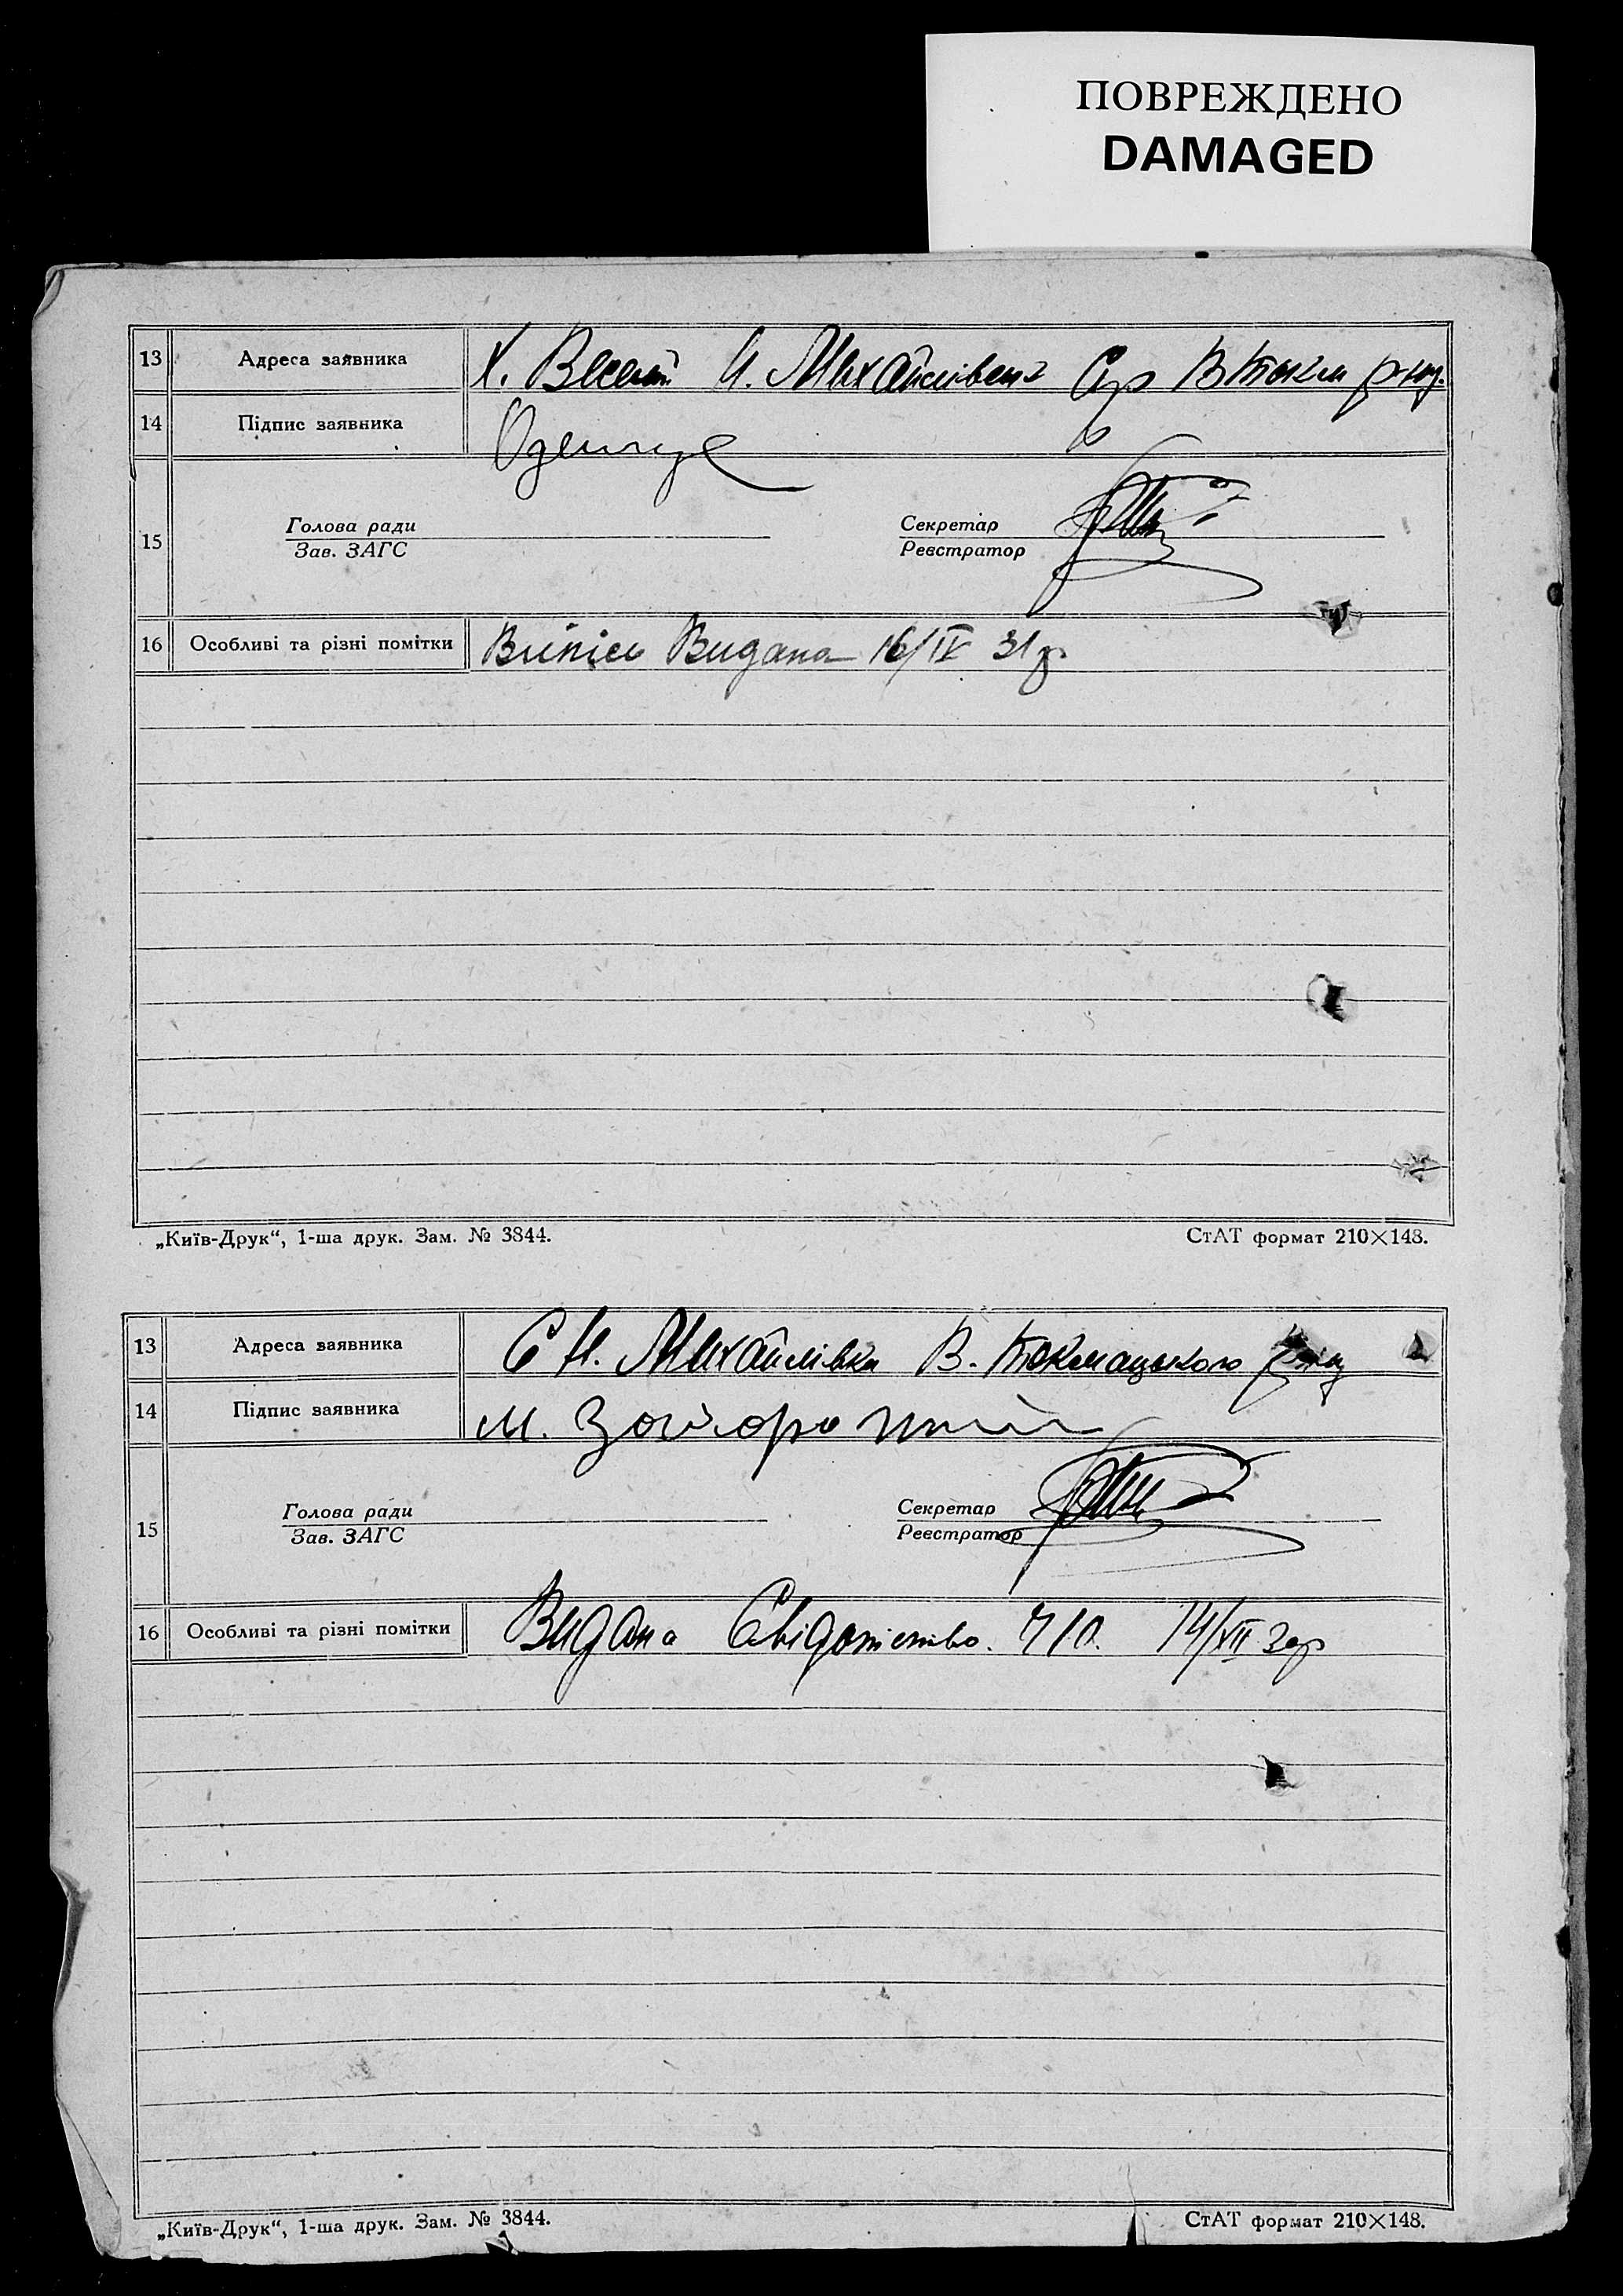 ПОВРЕЖДЕНО
DAMAGED
13 Адреса заявника Х. Веселий Н. Михайлівсь Ср В Токм р-ну.
14 Підпис заявника
15 Голова ради Секретар
Зав. ЗАГС Реєстратор
16 Особливі та різні помітки Випись Видана 16/IV 31 р
„Київ-Друк“, 1-ша друк. Зам. № 3844. СтАТ формат 210×148.
13 Адреса заявника С Н. Михайлівка В. Токмацького р-ну
14 Підпис заявника М.
15 Голова ради Секретар
Зав. ЗАГС Реєстратор
16 Особливі та різні помітки Видана Свідотство. 14/XII 30р
„Київ-Друк“, 1-ша друк. Зам. № 3844. СтАТ формат 210×148.